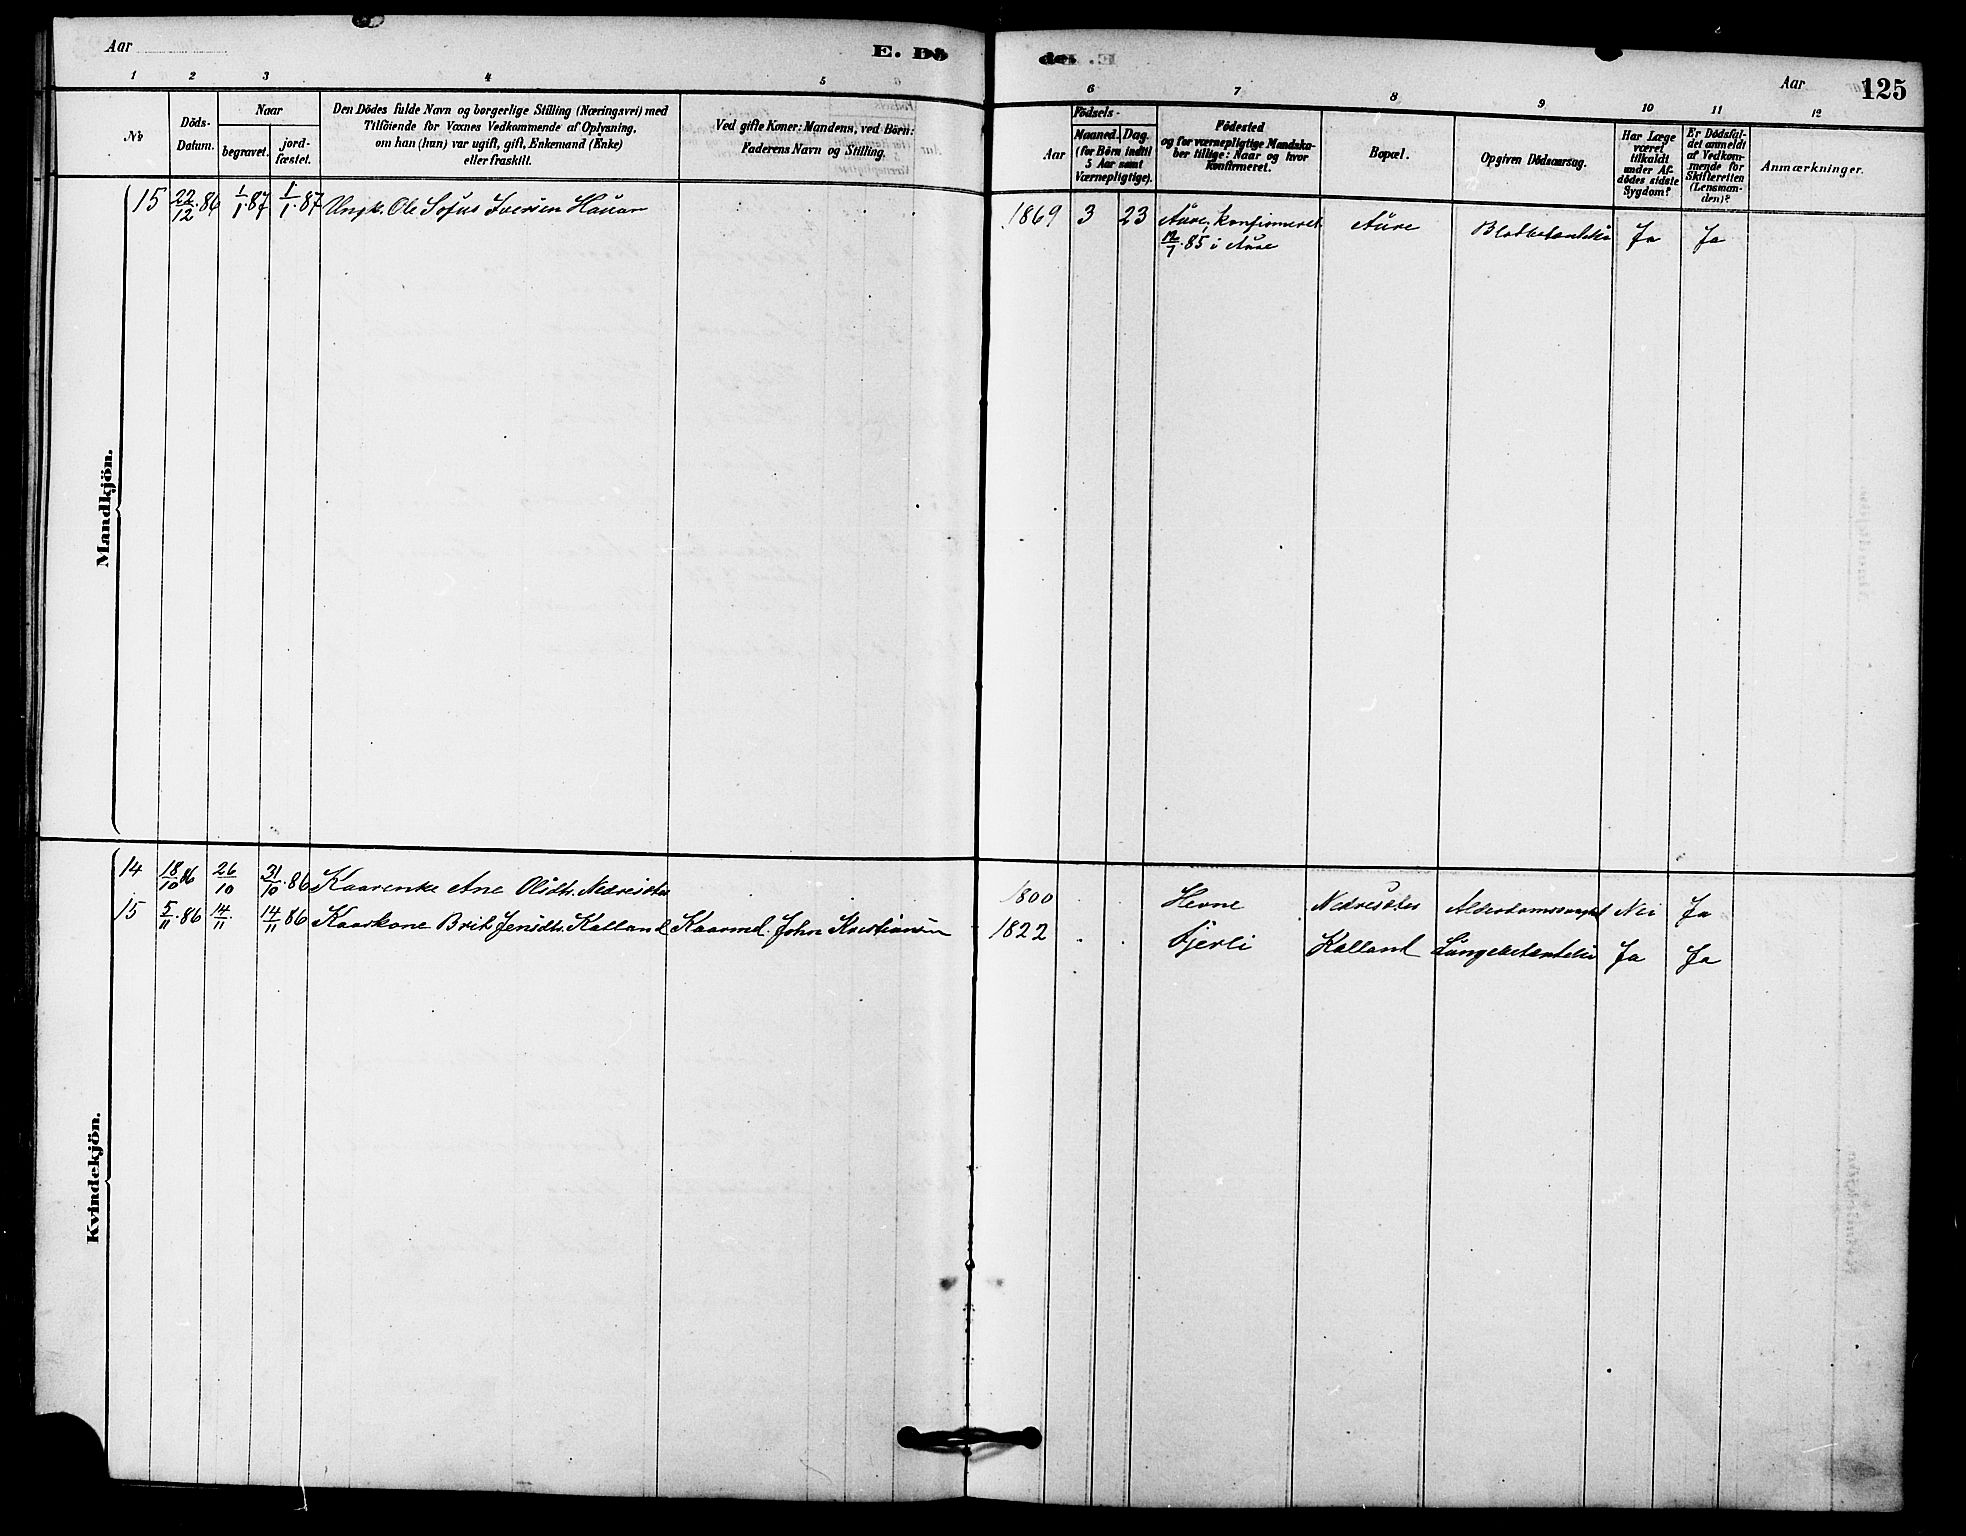 Aar
E. Dö
1 2 3 4 5
No
Döds-
Datum.
Naar
begravet.
jord-
fæstet.
Den Dödes fulde Navn og borgerlige Stilling (Næringsvei) med
Tilföiende for Voxnes Vedkommende af Oplysning,
om han (hun) var ugift, gift, Enkemand (Enke)
eller fraskilt.
Ved gifte Koner: Mandens, ved Börn:
Faderens Navn og Stilling.
Mandkjön.
15 22/12.86 1/1.87 1/1.87 Ungk. Ole Sofus Iversen
Kvindekjön.
14 18/10 86 26/10 31/10.86 Kaarenke Ane Olsdtr.
15 5/11.86 14/11. 14/11 86 Kaarkone Brit Jensdtr. Kalland Kaarmd. John Kristiansen
de E.
Aar 125
6 7 8 9 10 11 12
Aar
Födsels-
Maaned. Dag.
(for Börn indtil
5 Aar samt
Værnepligtige).
Födested
og for værnepligtige Mandska-
ber tillige: Naar og hvor
konfirmeret.
Bopæl.
Opgiven Dödsaarsag.
Har Læge
været
tilkaldt
under Af-
dödes sidste
Sygdom?
Er Dödsfal-
det anmeldt
af Vedkom-
mende for
Skifteretten
(Lensman-
den)?
Anmærkninger.
1869 3 23 Aure, konfirmeret Aure Ja Ja
12/7.85 i Aure
1800 Hevne Nei Ja
1822 Kalland Lungebetændelse Ja Ja